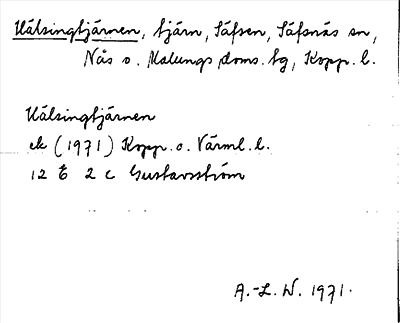 Hälsingtjärnen, tjärn, Säfsen, Säfsnäs sn,
Nås o. Malungs doms. tg, Kopp. l.
Hälsingtjärnen
ek (1971) Kopp. o. Värml. l.
12 E 2 c Gustavsström
A.-L. W. 1971.